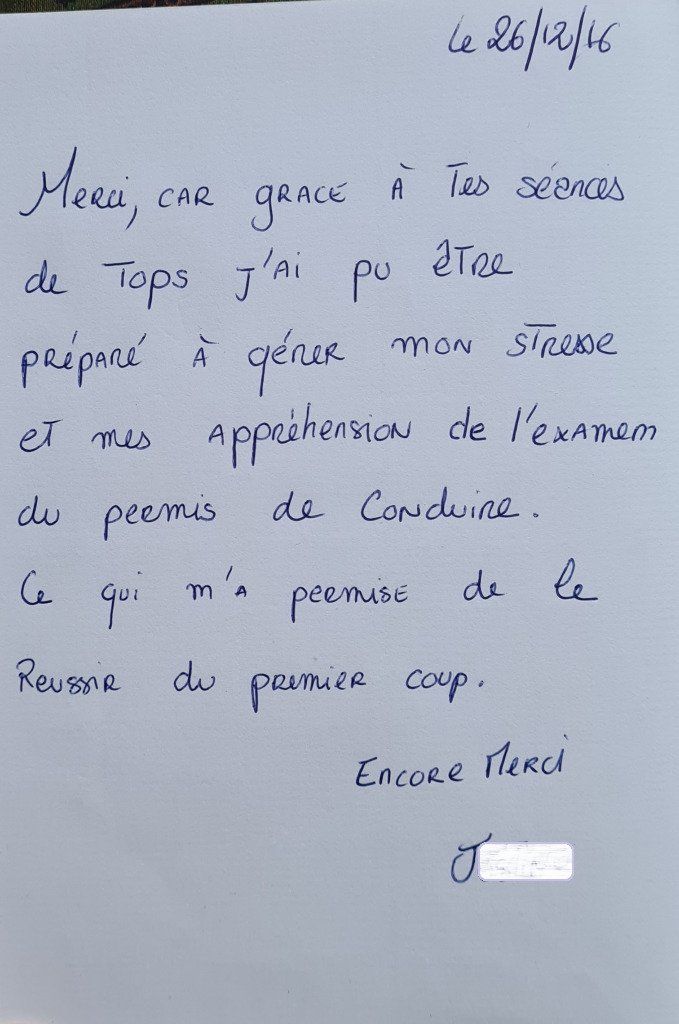 le 26/12/16
Merci, car grace à tes séances
de Tops j'ai pu être
préparé à gérer mon stresse
et mes appréhension de l'examem
du peemis de conduire.
Ce qui m'a peemise de le
Reussir du premier coup.
Encore Merci
J